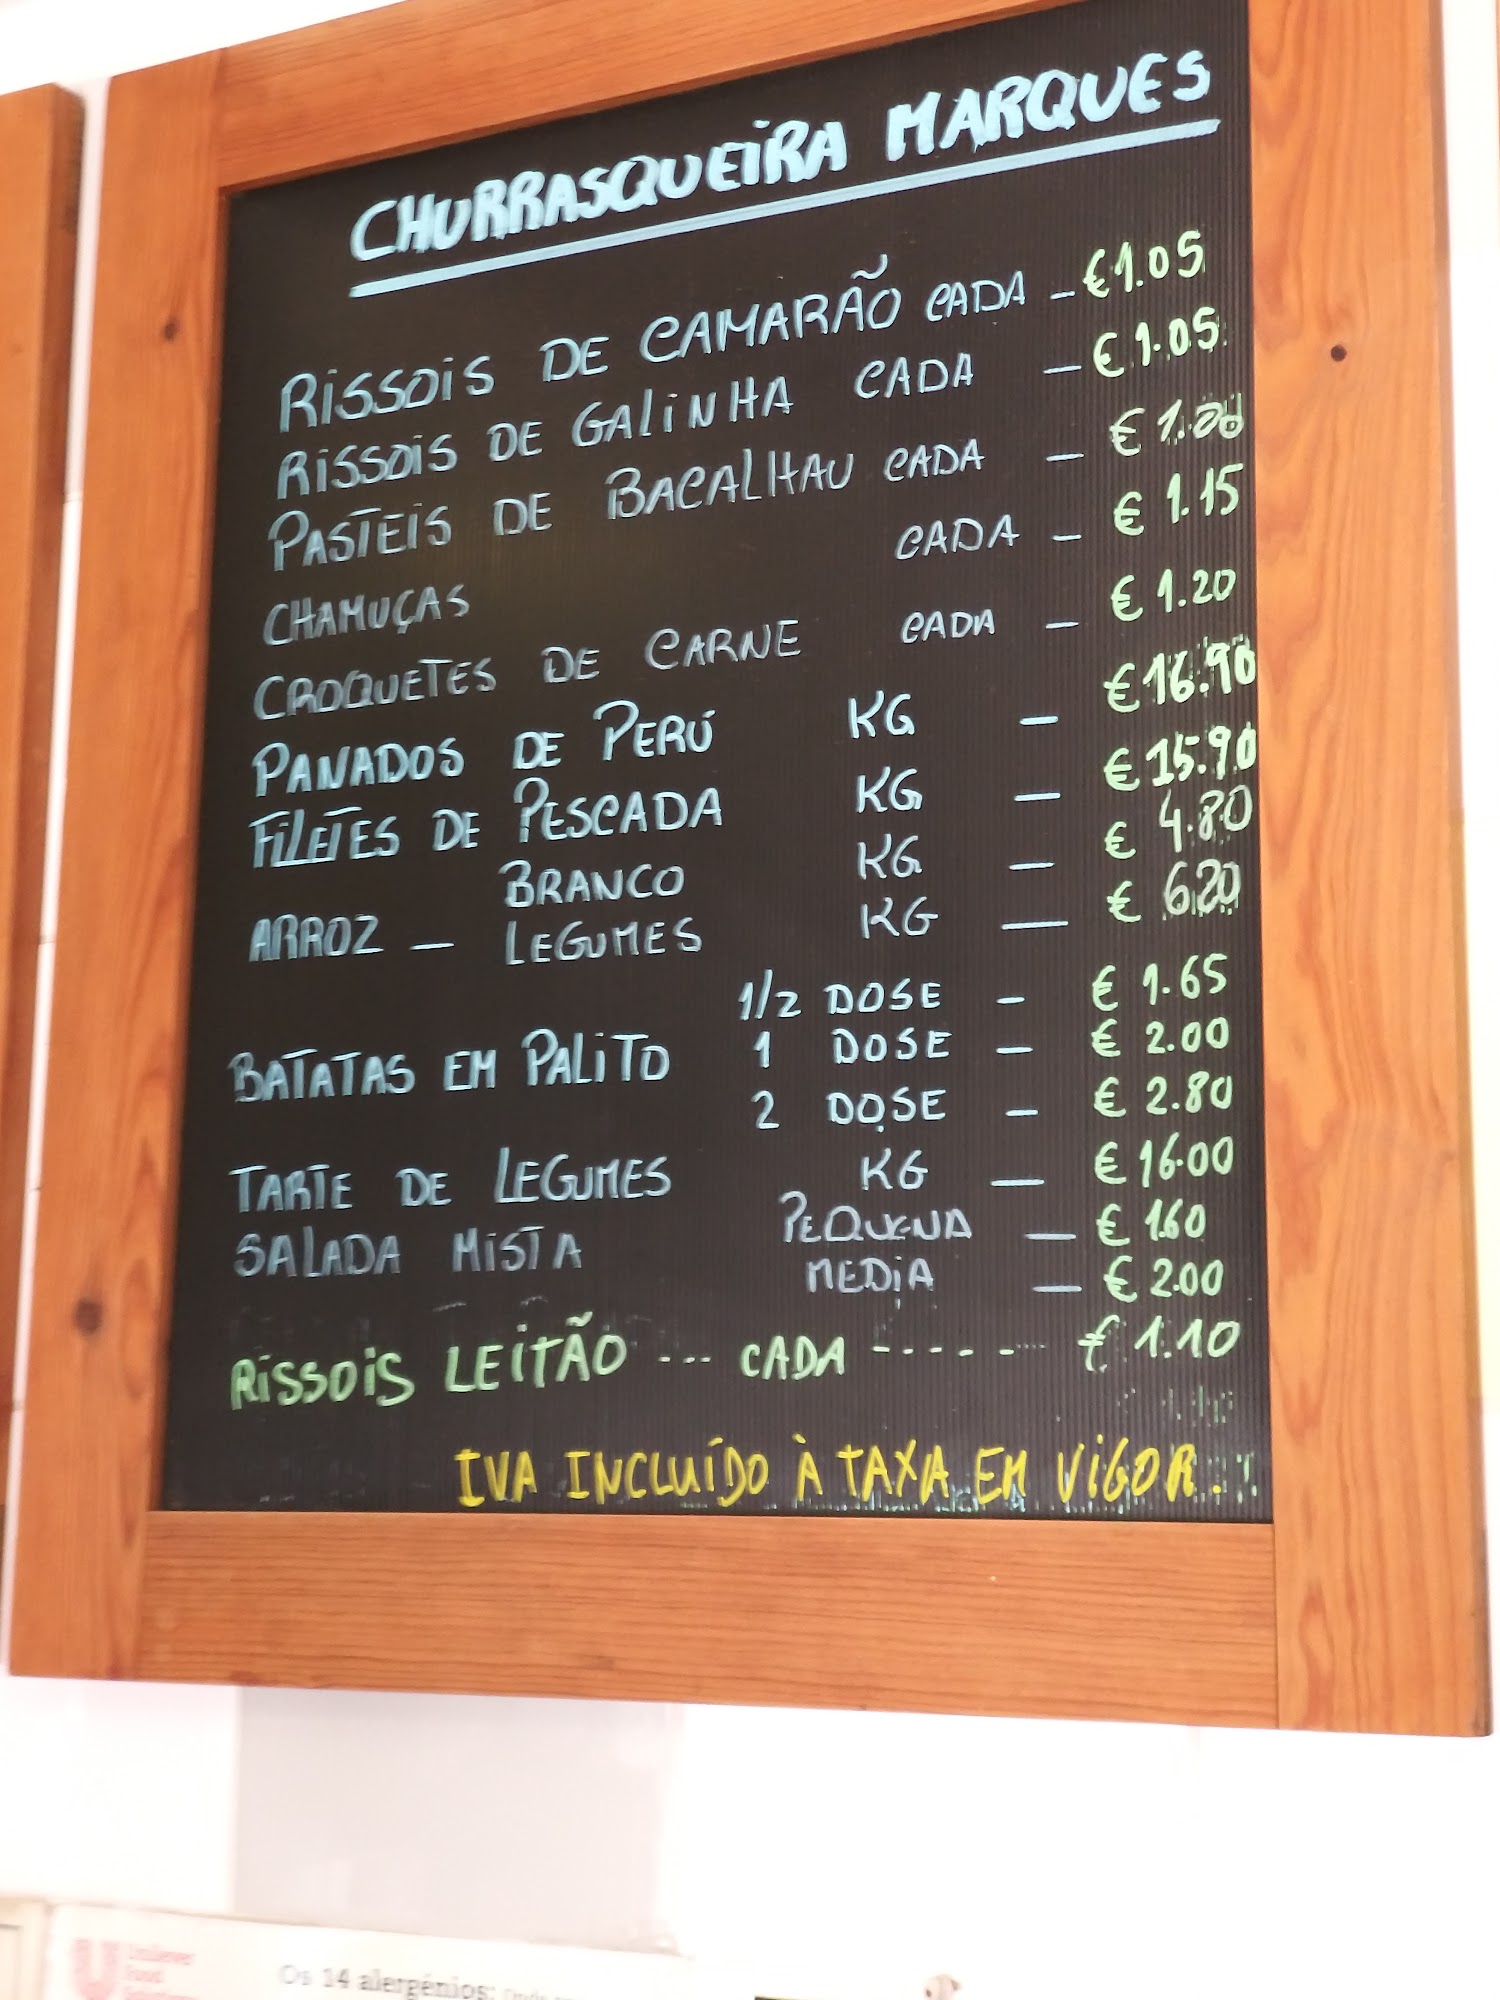 CHURRASQUEIRA MARQUES
RISSOIS DE CAMARÃO CADA - €1.05
RISSOIS DE GALINHA CADA - €1.05
PASTEIS DE BACALHAU CADA - €
CHAMUÇAS CADA - € 1.15
CROQUETES DE CARNE CADA - € 1.20
PANADOS DE PERÚ KG - €16.90
FILETES DE PESCADA KG - €15.90
BRANCO KG - € 4.80
ARROZ - LEGUMES KG - € 6.20
1/2 DOSE - € 1.65
BATATAS EM PALITO 1 DOSE - € 2.00
2 DOSE - € 2.80
TARTE DE LEGUMES KG - € 16.00
SALADA MISTA PEQUENA - € 1.60
MEDIA - € 2.00
RISSOIS LEITÃO --- CADA ----- € 1.10
IVA INCLUÍDO À TAXA EM VIGOR.
Unilever
Food
Solutions
Os 14 alergénios: